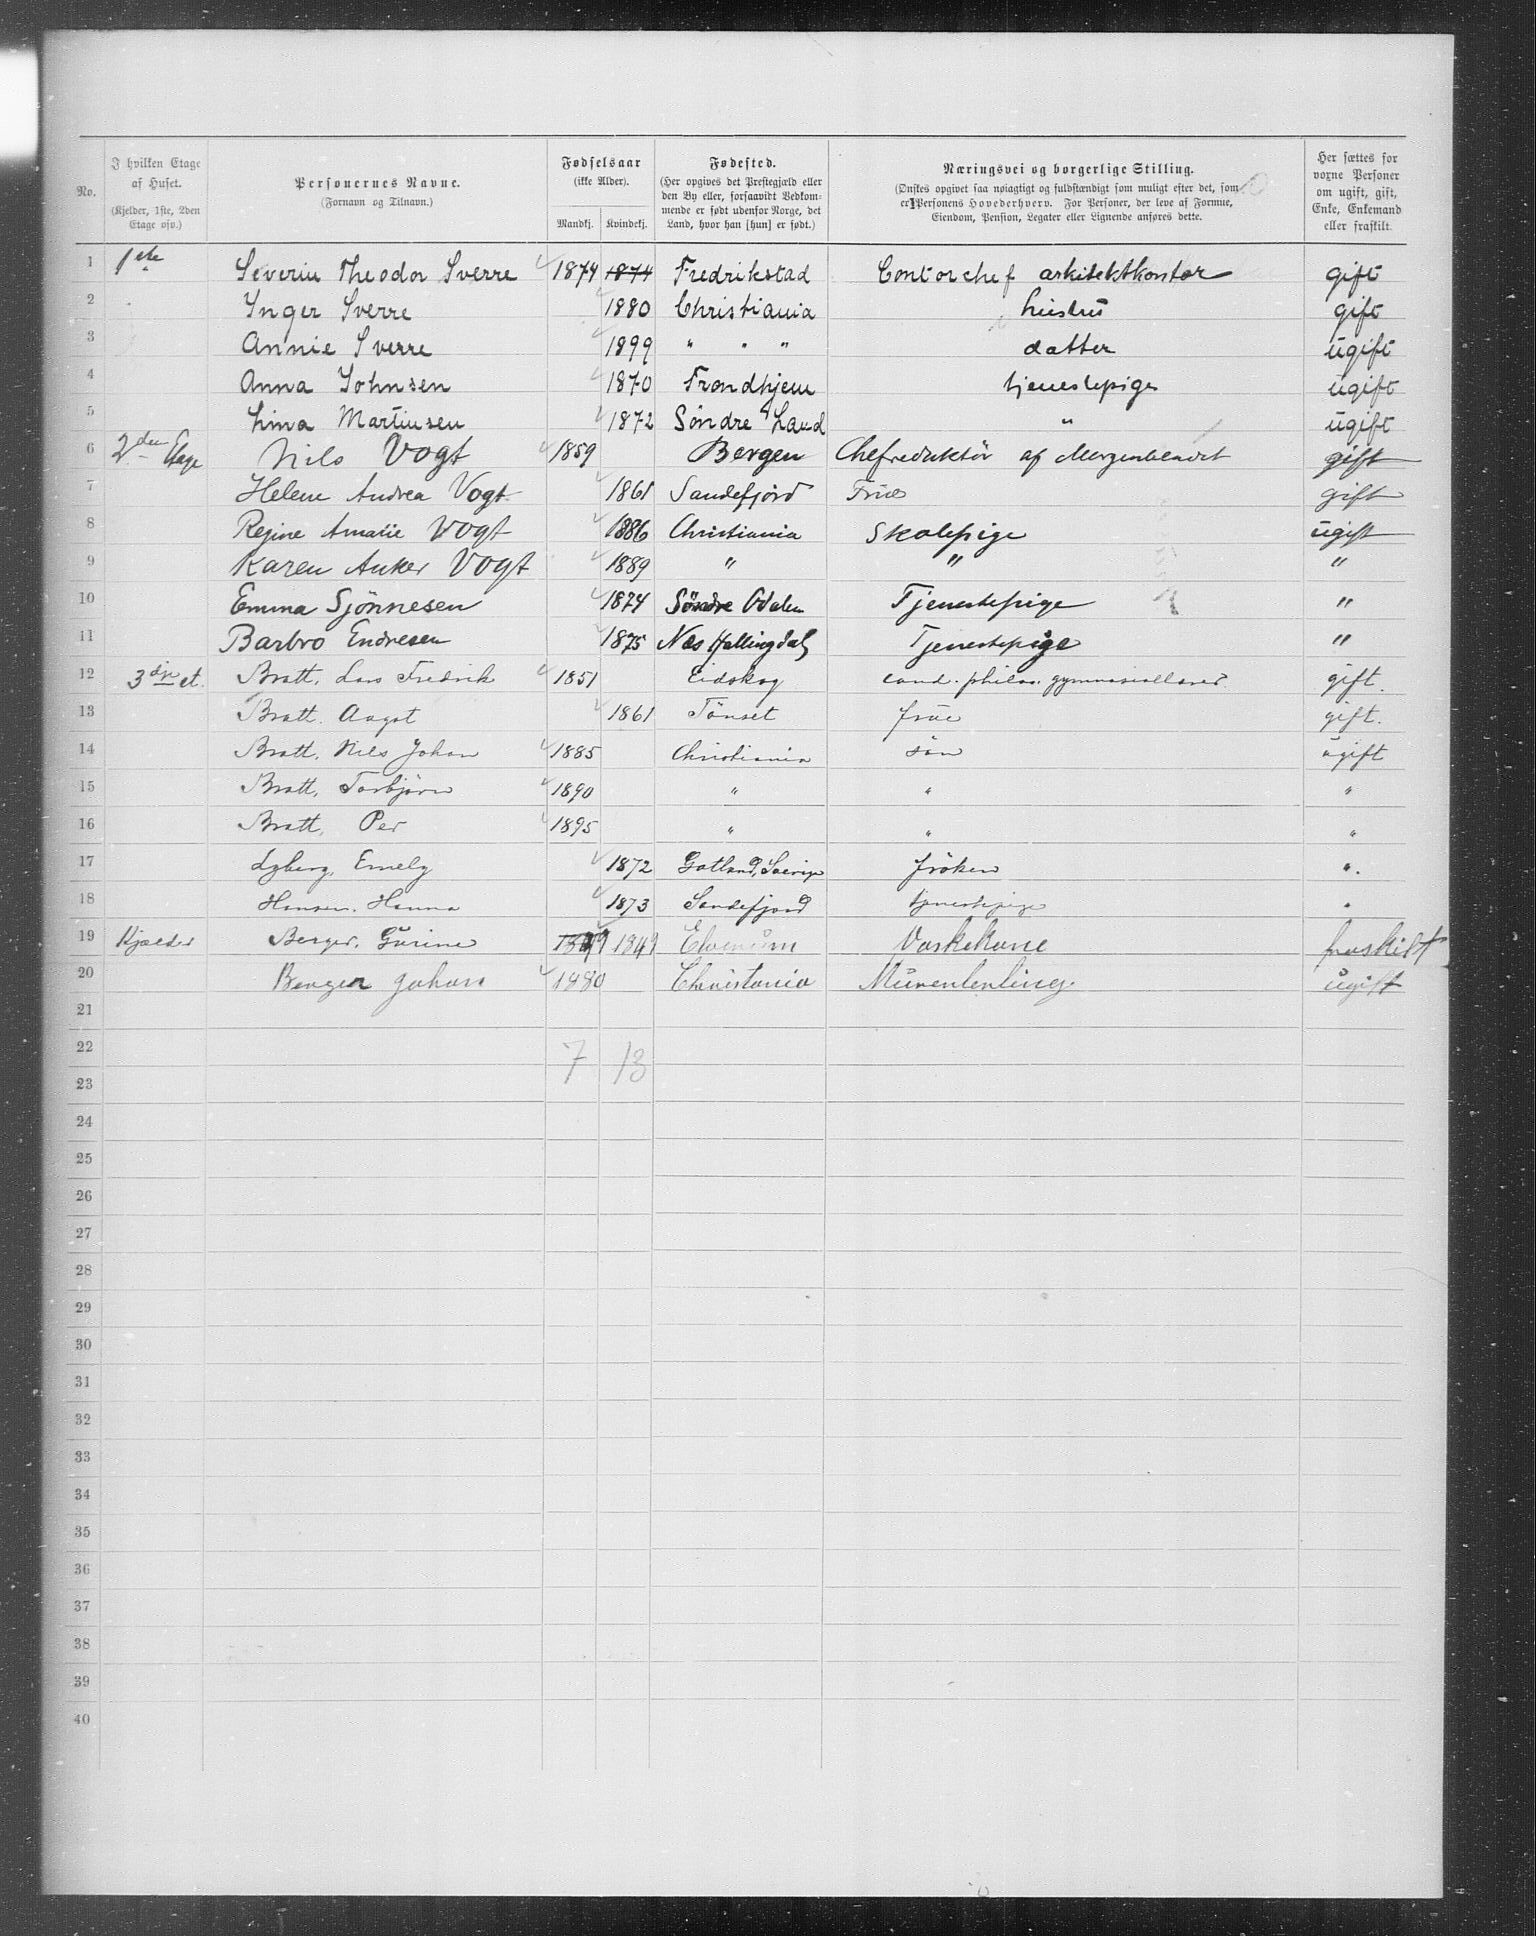 No.
I hvilken Etage af Huset.
(Kjelder, 1ste, 2den Etage osv.)
Personernes Navne.
(Fornavn og Tilnavn.)
Fødselsaar
(ikke Alder).
Mandkj. Kvindekj.
Fødested.
(Her opgives det Præstegjæld eller den By eller, forsaavidt Vedkommende er født udenfor Norge, det Land, hvor han [hun] er født.)
Næringsvei og borgerlige Stilling.
(Ønskes opgivet saa nøiagtigt og fuldstændigt som muligt efter det, som er Personens Hovederhverv. For Personer, der leve af Formue, Eiendom, Pension, Legater eller Lignende anføres dette.
Her sættes for voxne Personer om ugift, gift, Enke, Enkemand eller fraskilt.
1 1ste Severin Theodor Sverre 1874 1874 Fredrikstad Contorchef arkitektkontor gift
2 Inger Sverre 1880 Christiania hustru gift
3 Annie Sverre 1899 " " " datter ugift
4 Anna Johnsen 1870 Trondhjem tjenestepige ugift
5 Lina Martinsen 1872 Söndre Land " ugift
6 2den Etage Nils Vogt 1859 Bergen Chefredaktör af Morgenbladet gift
7 Helene Andrea Vogt 1861 Sandefjord Frue gift
8 Regine Amalie Vogt 1886 Christiania Skolepige ugift
9 Karen Anker Vogt 1889 " " "
10 Emma Sjönnesen 1874 Söndre Odalen Tjenestepige "
11 Barbro Endresen 1875 Næs Hallingdal Tjenestepige "
12 3die et. Bratt, Lars Fredrik 1851 Eidskog cand. philos. gymnasiallærer gift.
13 Bratt. Aagot 1861 Tönset frue gift.
14 Bratt, Nils Johan 1885 Christiania sön ugift
15 Bratt, Torbjörn 1890 " " "
16 Bratt, Per 1895 " " "
17 Lyberg, Emely 1872 Gotland, Sverige fröken "
18 Hansen, Hanna 1873 Sandefjord tjenestepige "
19 Kjælder Berger, Gurine 1849 1849 Elverum Vaskekone fraskilt
20 Berger Johan 1880 Christania Murerlerling. ugift
21
22 7 13
23
24
25
26
27
28
29
30
31
32
33
34
35
36
37
38
39
40